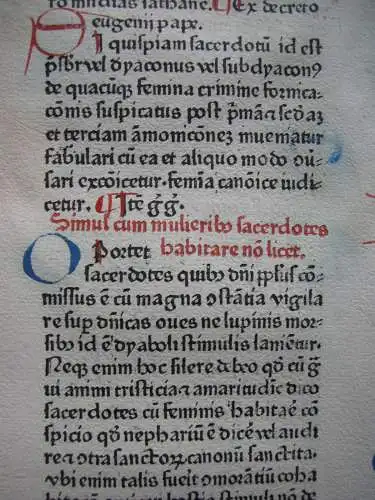 ro militias sathane. ¶ Ex decreto
eugenii pape.
Si quispiam sacerdotū id est
p̄sbr̄ vel dyaconus vel subdyacon9
de quacūq; femina crimine fornica-
cōnis suspicatus post p̄mā ⁊ sc̄dā ⁊
et terciam āmonicōneꝫ inueniatur
fabulari cū ea et aliquo modo ou-
sari excōicetur. femīa canōice iudi-
cetur. ¶ Itē ḡḡ.
Simul cum mulierib9 sacerdotes
habitare nō licet.
Oportet
sacerdotes quib9 dn̄i p̄psus cō-
missus ē cū magna ꝯstātia vigila
re sup dn̄icas oues ne lupinis mor-
sib9 id ē dyaboli stimulis laniētur.
Neqꝫ enim hoc silere debeo qd̄ cū ḡ
ui animi tristicia ⁊ amaritudīe dico
sacerdotes cū feminis habitaē cō
spicio qd̄ nephariū ē dicē vel audi
re ⁊ ꝯtra sanctoꝝ canonū sanctita.
vbi enim talis fuerit ꝯmorātiū coha